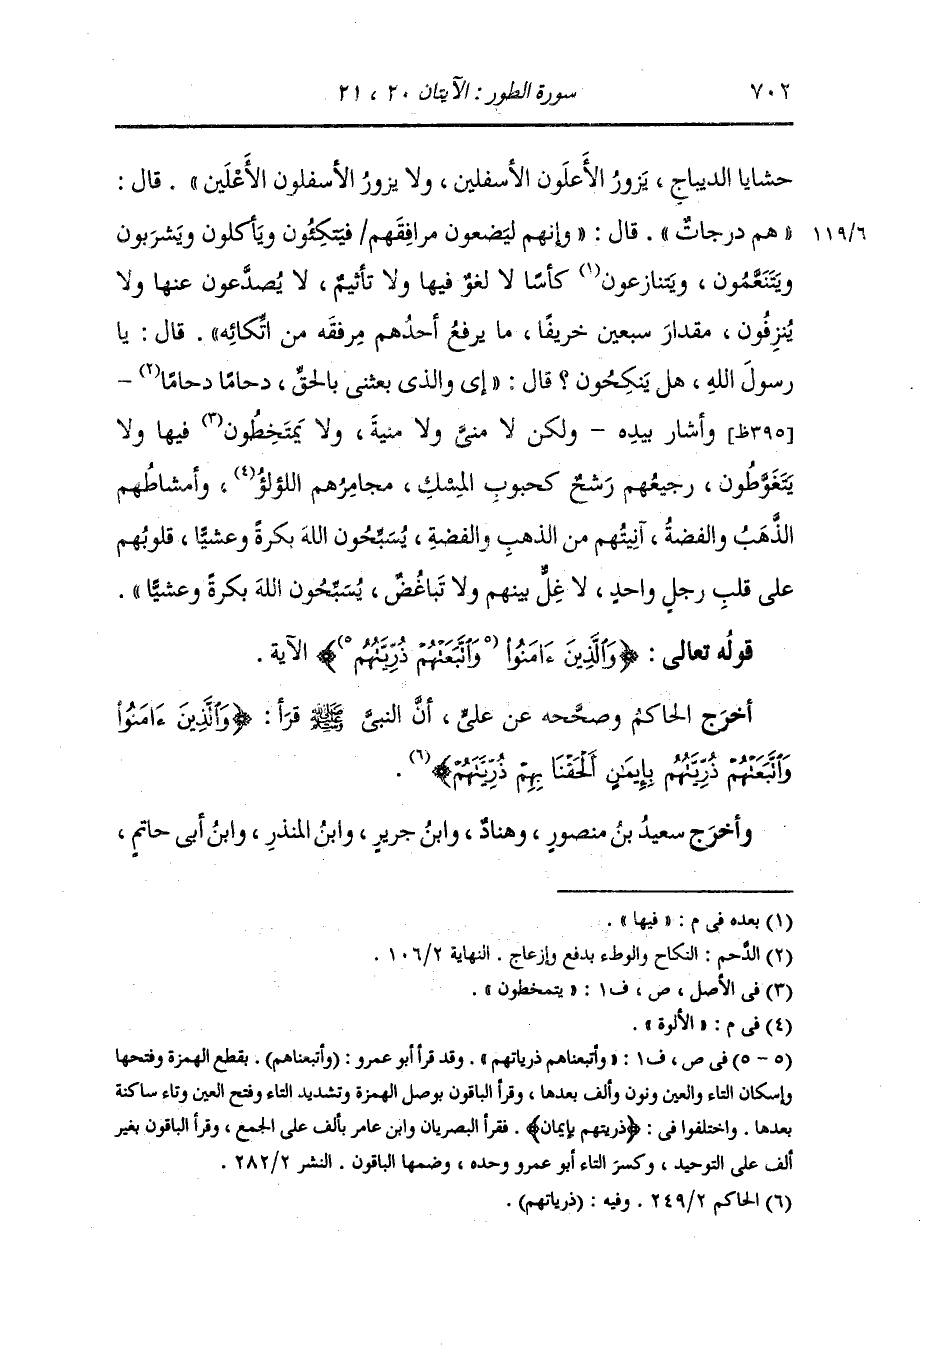 ٧٠٢ سورة الطور : الآيتان ٢٠ ، ٢١
حشايا الديباجِ ، يَزورُ الأَعلَون الأسفلين ، ولا يزورُ الأسفلون الأَعْلَين » . قال :
١١٩/٦ « هم درجاتٌ » . قال : « وإنهم ليَضعون مرافِقَهم/ فيَتكئُون ويَأكلون ويَشرَبون
ويَتَنَعَّمُون ، ويَتنازعون(١) كأسًا لا لغوٌ فيها ولا تأثيمٌ ، لا يُصدَّعون عنها ولا
يُنزِفُون ، مقدارَ سبعين خريفًا ، ما يرفعُ أحدُهم مِرفقَه من اتِّكائِه» . قال : يا
رسولَ اللهِ ، هل يَنكِحُون ؟ قال : « إى والذى بعثنى بالحقِّ ، دحامًا دحامًا(٢) –
[٣٩٥ظ] وأشار بيدِه – ولكن لا منىَّ ولا منيةَ ، ولا يَمتَخِطُون(٣) فيها ولا
يَتَغَوَّطُون ، رجيعُهم رَشحٌ كحبوبِ المِسْكِ ، مجامِرُهم اللؤلؤُ(٤) ، وأمشاطُهم
الذَّهَبُ والفضةُ ، آنِيتُهم من الذهبِ والفضةِ ، يُسَبِّحُون اللهَ بكرةً وعشيًّا ، قلوبُهم
على قلبِ رجلٍ واحدٍ ، لا غِلَّ بينهم ولا تَباغُضٌ ، يُسَبِّحُون اللهَ بكرةً وعشيًّا » .
قولُه تعالى : ﴿وَٱلَّذِينَ ءَامَنُوا۟ (٥وَٱتَّبَعَتْهُمْ ذُرِّيَّتُهُم٥)﴾ الآية .
أخرَج الحاكمُ وصحَّحه عن علىٍّ ، أنَّ النبىَّ ﷺ قرَأ : ﴿وَٱلَّذِينَ ءَامَنُوا۟
وَٱتَّبَعَتْهُمْ ذُرِّيَّتُهُم بِإِيمَٰنٍ أَلْحَقْنَا بِهِمْ ذُرِّيَّتَهُمْ﴾(٦) .
وأخرَج سعيدُ بنُ منصورٍ ، وهنادٌ ، وابنُ جريرٍ ، وابنُ المنذرِ ، وابنُ أبى حاتمٍ ،
(١) بعده فى م : « فيها » .
(٢) الدَّحم : النكاح والوطء بدفع وإزعاج . النهاية ١٠٦/٢ .
(٣) فى الأصل ، ص ، ف١ : « يتمخطون » .
(٤) فى م : « الألوة » .
(٥ – ٥) فى ص ، ف١ : « وأتبعناهم ذرياتهم » . وقد قرأ أبو عمرو : (وأتبعناهم) . بقطع الهمزة وفتحها
وإسكان التاء والعين ونون وألف بعدها ، وقرأ الباقون بوصل الهمزة وتشديد التاء وفتح العين وتاء ساكنة
بعدها . واختلفوا فى : ﴿ذريتهم بإيمان﴾ . فقرأ البصريان وابن عامر بألف على الجمع ، وقرأ الباقون بغير
ألف على التوحيد ، وكسرَ التاء أبو عمرو وحده ، وضمها الباقون . النشر ٢٨٢/٢ .
(٦) الحاكم ٢٤٩/٢ . وفيه : (ذرياتهم) .